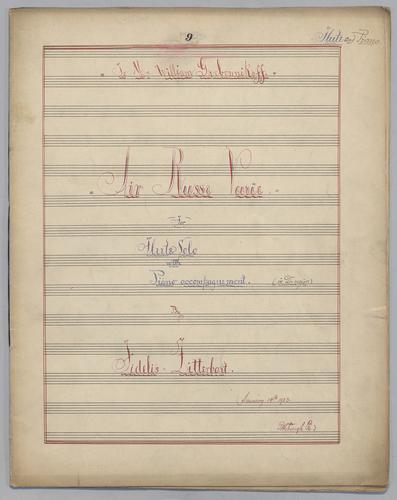 9
Flute and Piano.
To Mr. William Grebennikoff.
Air Russe Varée.
for
Flute Solo
with
Piano accompagnement.
By
Fidelis Zitterbart.
January 14th 1913.
Pittsburgh Pa.